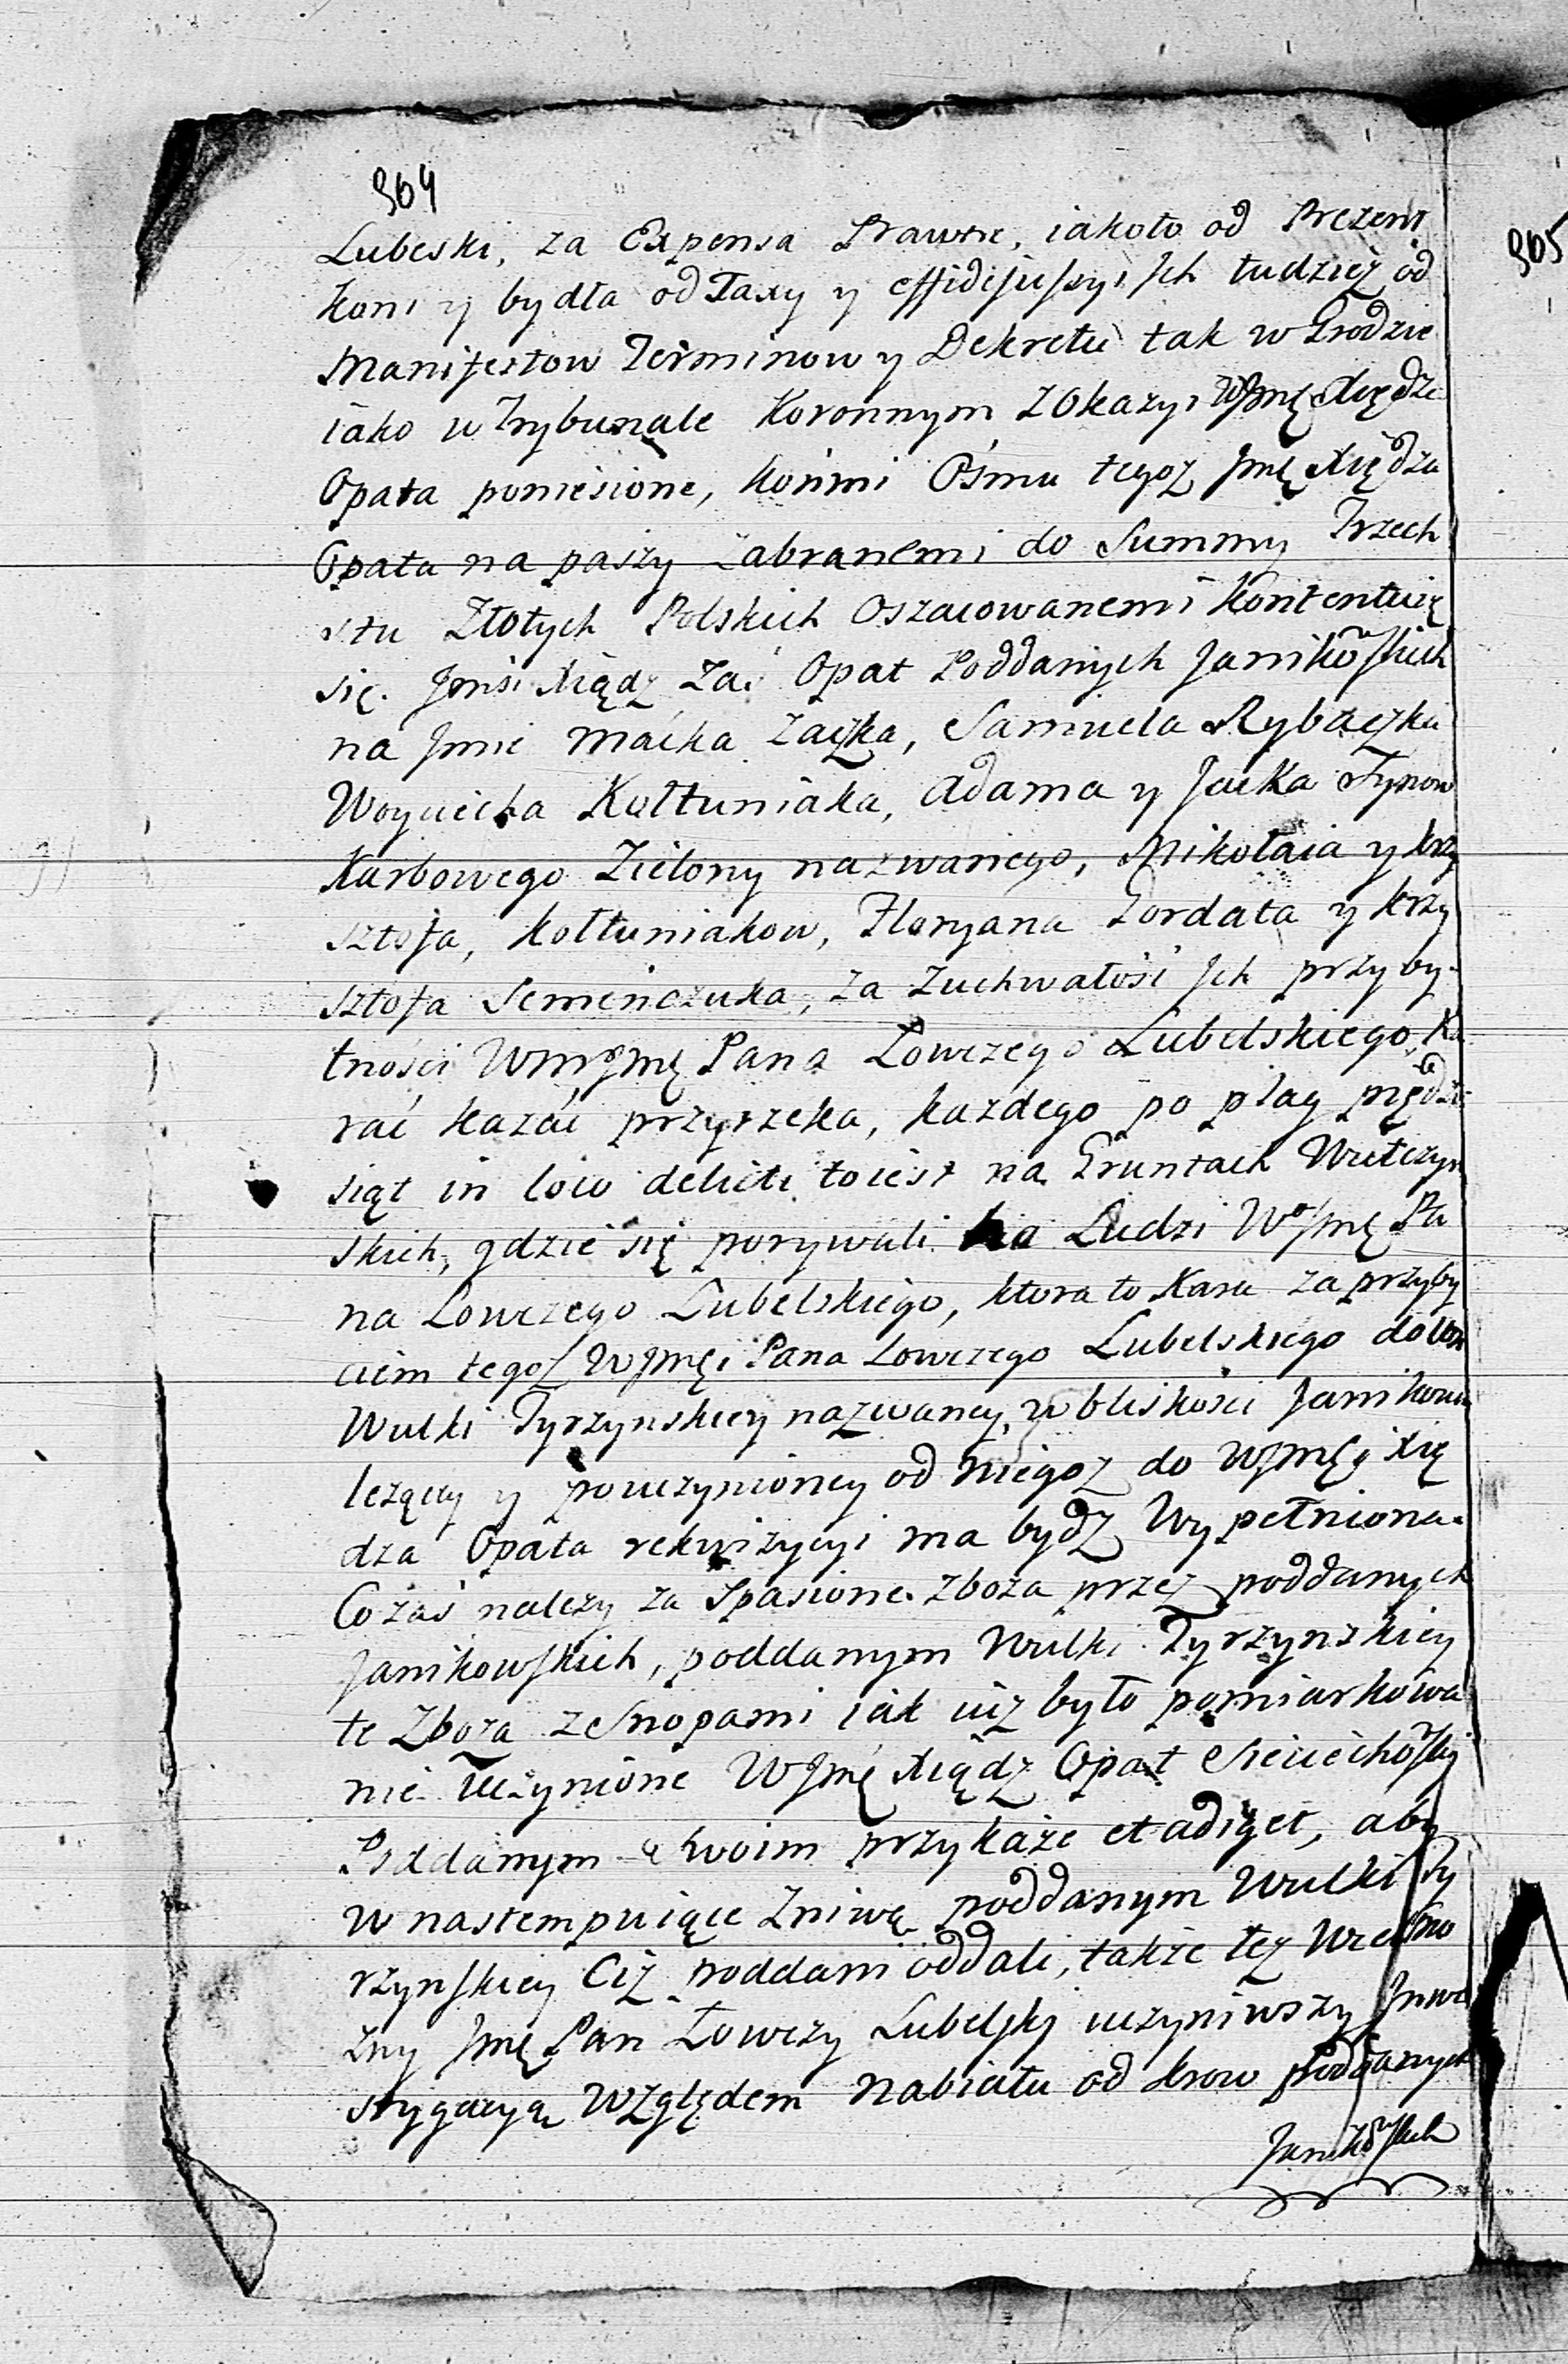 904
905
Lubeski, za Expensa Prawne, iakoto od Prezent
koni y bydła od Taxy y effidijussyi Jch tudzież od
Manifestow Terminow y Dekretu tak w Grodzie
iako w Trybunale Koronnym z Okazyi WJmę Xiędza
Opata poniesione, końmi Ośmu tegoz Jmę Xiędza
Opata na paszy zabranemi do Summy Trzech
stu Złotych Polskich Oszacowanemi kontentuię
się. Jmść Xiądz Zaś Opat Poddanych Janikowskich
na Jmie Maćka Zaczka, Samuela Rybaczka
Woyciecha Kołtuniaka, Adama y Jacka Synow
Karbowego Zielony nazwanego, Mikołaia y krzy
sztofa, kołtuniakow, Floryana Gordata y krzy
sztofa Semenczuka, za zuchwałość Jch przyby-
tności WmJmę Pana Łowczego Lubelskiego, Ka
rać kazać przyrzeka, kazdego po plag pięćdzie
siąt in loco delicti toiest na Gruntach Wulczyn
skich, gdzie się porywali na Ludzi WoJmę Pa
na Łowczego Lubelskiego, ktora to Kara za przyby
ciem tegoż WJmę Pana Łowczego Lubelskiego do
Wulki Tyrzynskiey nazwaney, w bliskości Janikowa
leżącey y pouczynioney od niegoz do WJmę Xię
dza Opata rekwizycyi ma bydz Wypełniona.
Co zaś nalezy za Spasione zboza przez poddanych
Janikowskich, poddanym Wulki Tyrzynskiey
te Zboza z Snopami iak iuz było pomiarkowa
nie uczynione WJmę Xiądz Opat Sieciechowski
Poddanym swoim przykaże et adiget, aby
w nastempuiące Zniwa poddanym Wulki Ty
rzynskiey Ciż poddani oddali, także też Wielmo
żny Jmę Pan Łowczy Lubelski uczyniwszy Jnwe
stygacyą Względem nabiału od krow Poddanych
Janikowskich